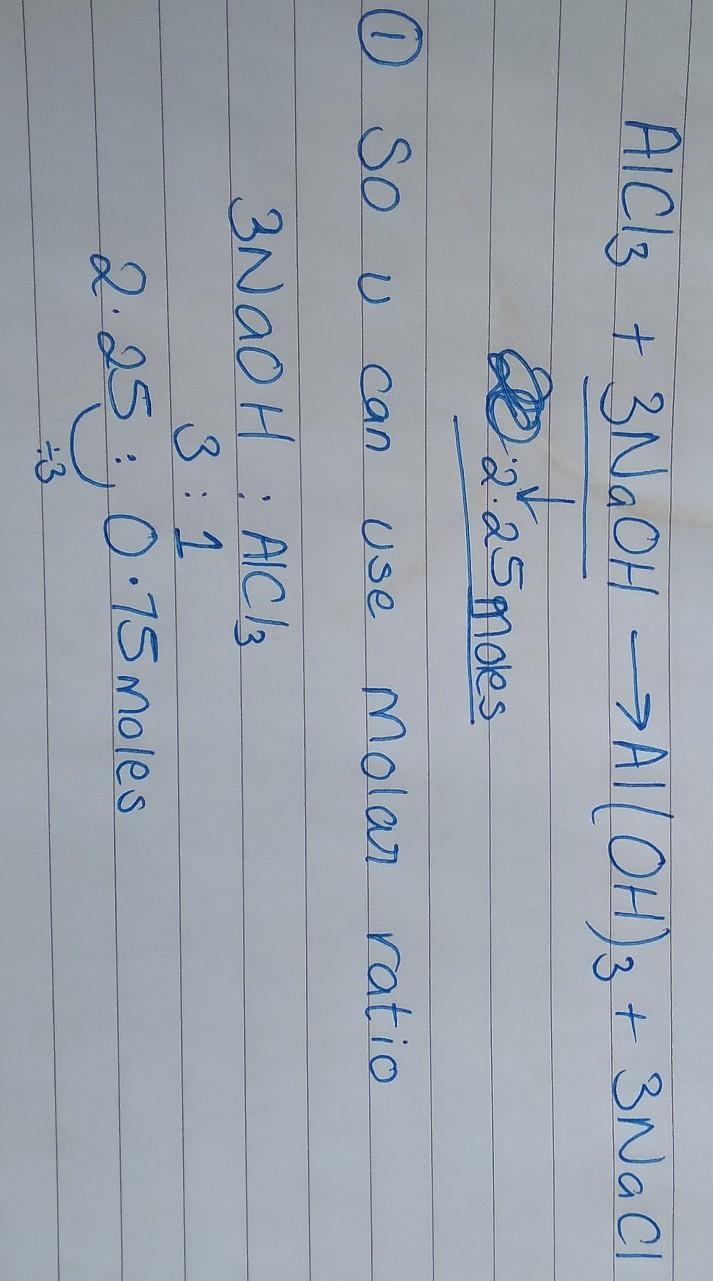 AlCl3 + 3NaOH → Al(OH)3 + 3NaCl
↓
2.25 moles
① So u can use Molar ratio
3NaOH : AlCl3
3 : 1
2.25 : 0.75 moles
÷3